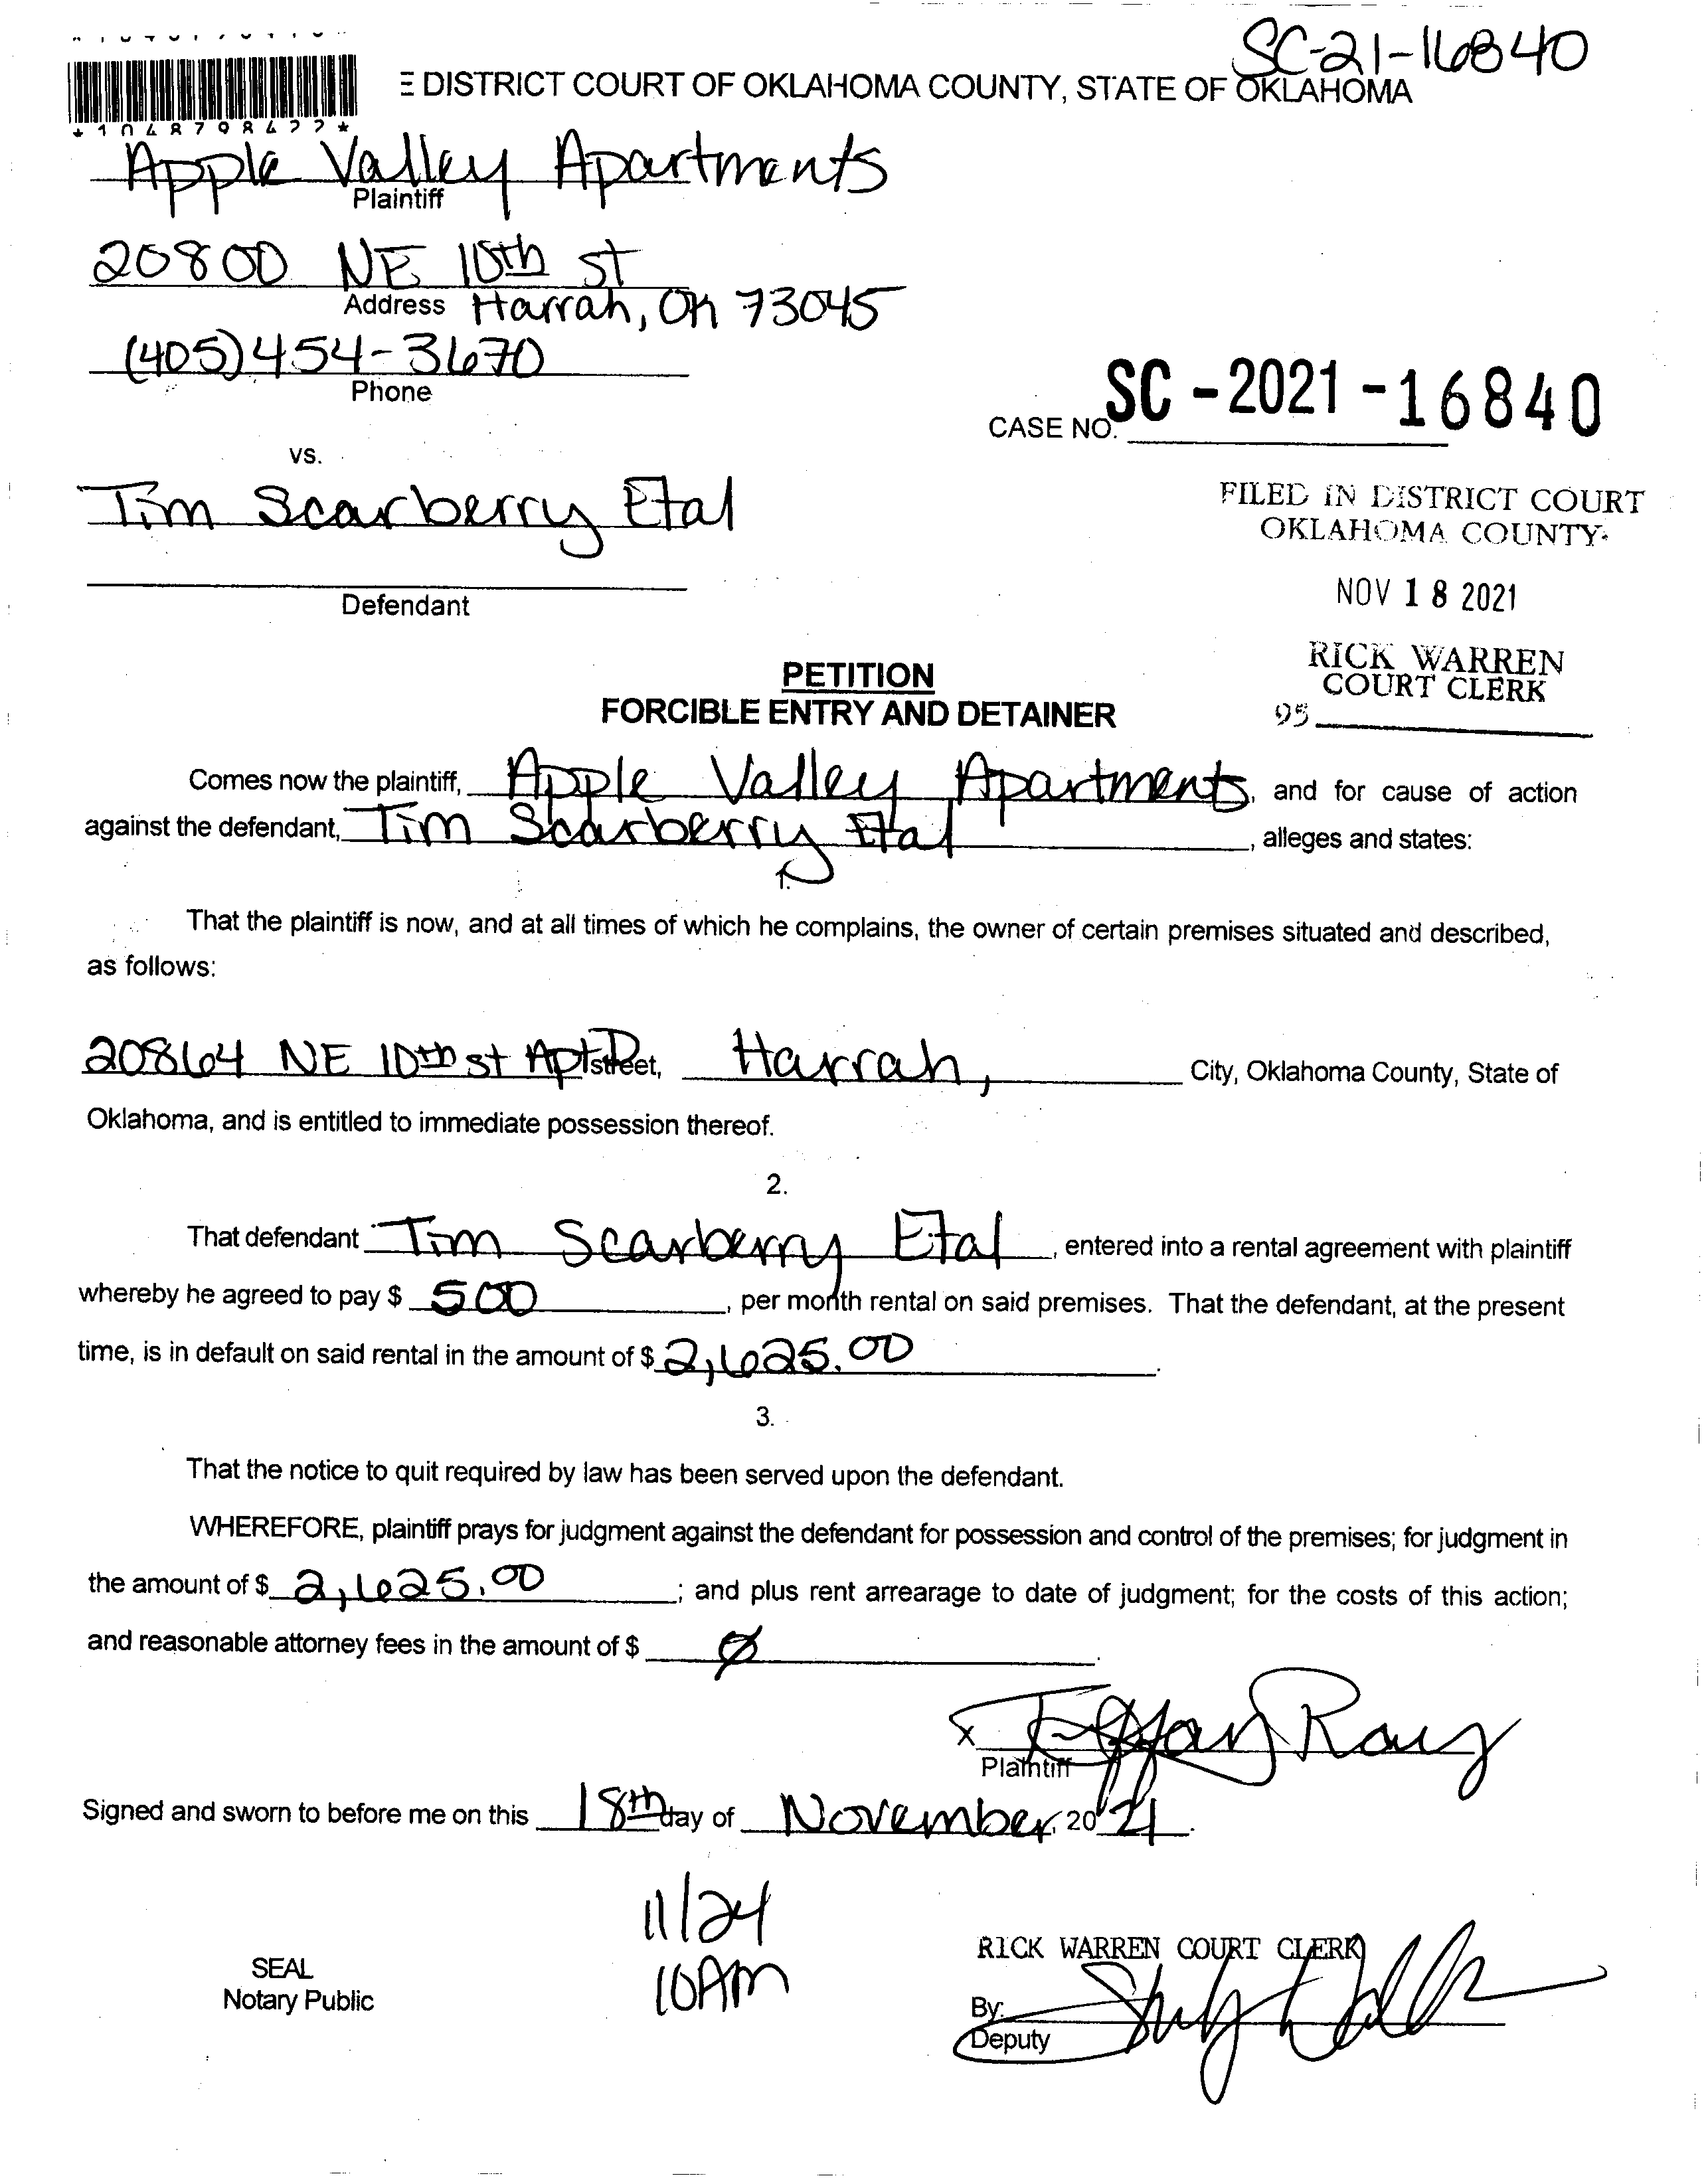 SC-21-16840
E DISTRICT COURT OF OKLAHOMA COUNTY, STATE OF OKLAHOMA
Apple Valley Apartments
Plaintiff
20800 NE 10th st
Address Harrah, OK 73045
(405) 454-3670
Phone
CASE NO. SC-2021-16840
vs.
Tim Scarberry Etal
Defendant
FILED IN DISTRICT COURT
OKLAHOMA COUNTY
NOV 18 2021
RICK WARREN
COURT CLERK
95
PETITION
FORCIBLE ENTRY AND DETAINER
Comes now the plaintiff, Apple Valley Apartments, and for cause of action
against the defendant, Tim Scarberry Etal, alleges and states:
1.
That the plaintiff is now, and at all times of which he complains, the owner of certain premises situated and described,
as follows:
20864 NE 10th st Apt D Street, Harrah, City, Oklahoma County, State of
Oklahoma, and is entitled to immediate possession thereof.
2.
That defendant Tim Scarberry Etal, entered into a rental agreement with plaintiff
whereby he agreed to pay $ 500, per month rental on said premises. That the defendant, at the present
time, is in default on said rental in the amount of $ 2,625.00.
3.
That the notice to quit required by law has been served upon the defendant.
WHEREFORE, plaintiff prays for judgment against the defendant for possession and control of the premises; for judgment in
the amount of $ 2,625.00; and plus rent arrearage to date of judgment; for the costs of this action;
and reasonable attorney fees in the amount of $ Ø.
X Tiffany Ray
Plaintiff
Signed and sworn to before me on this 18th day of November, 2021.
11/24
10AM
SEAL
Notary Public
RICK WARREN COURT CLERK
By:
Deputy